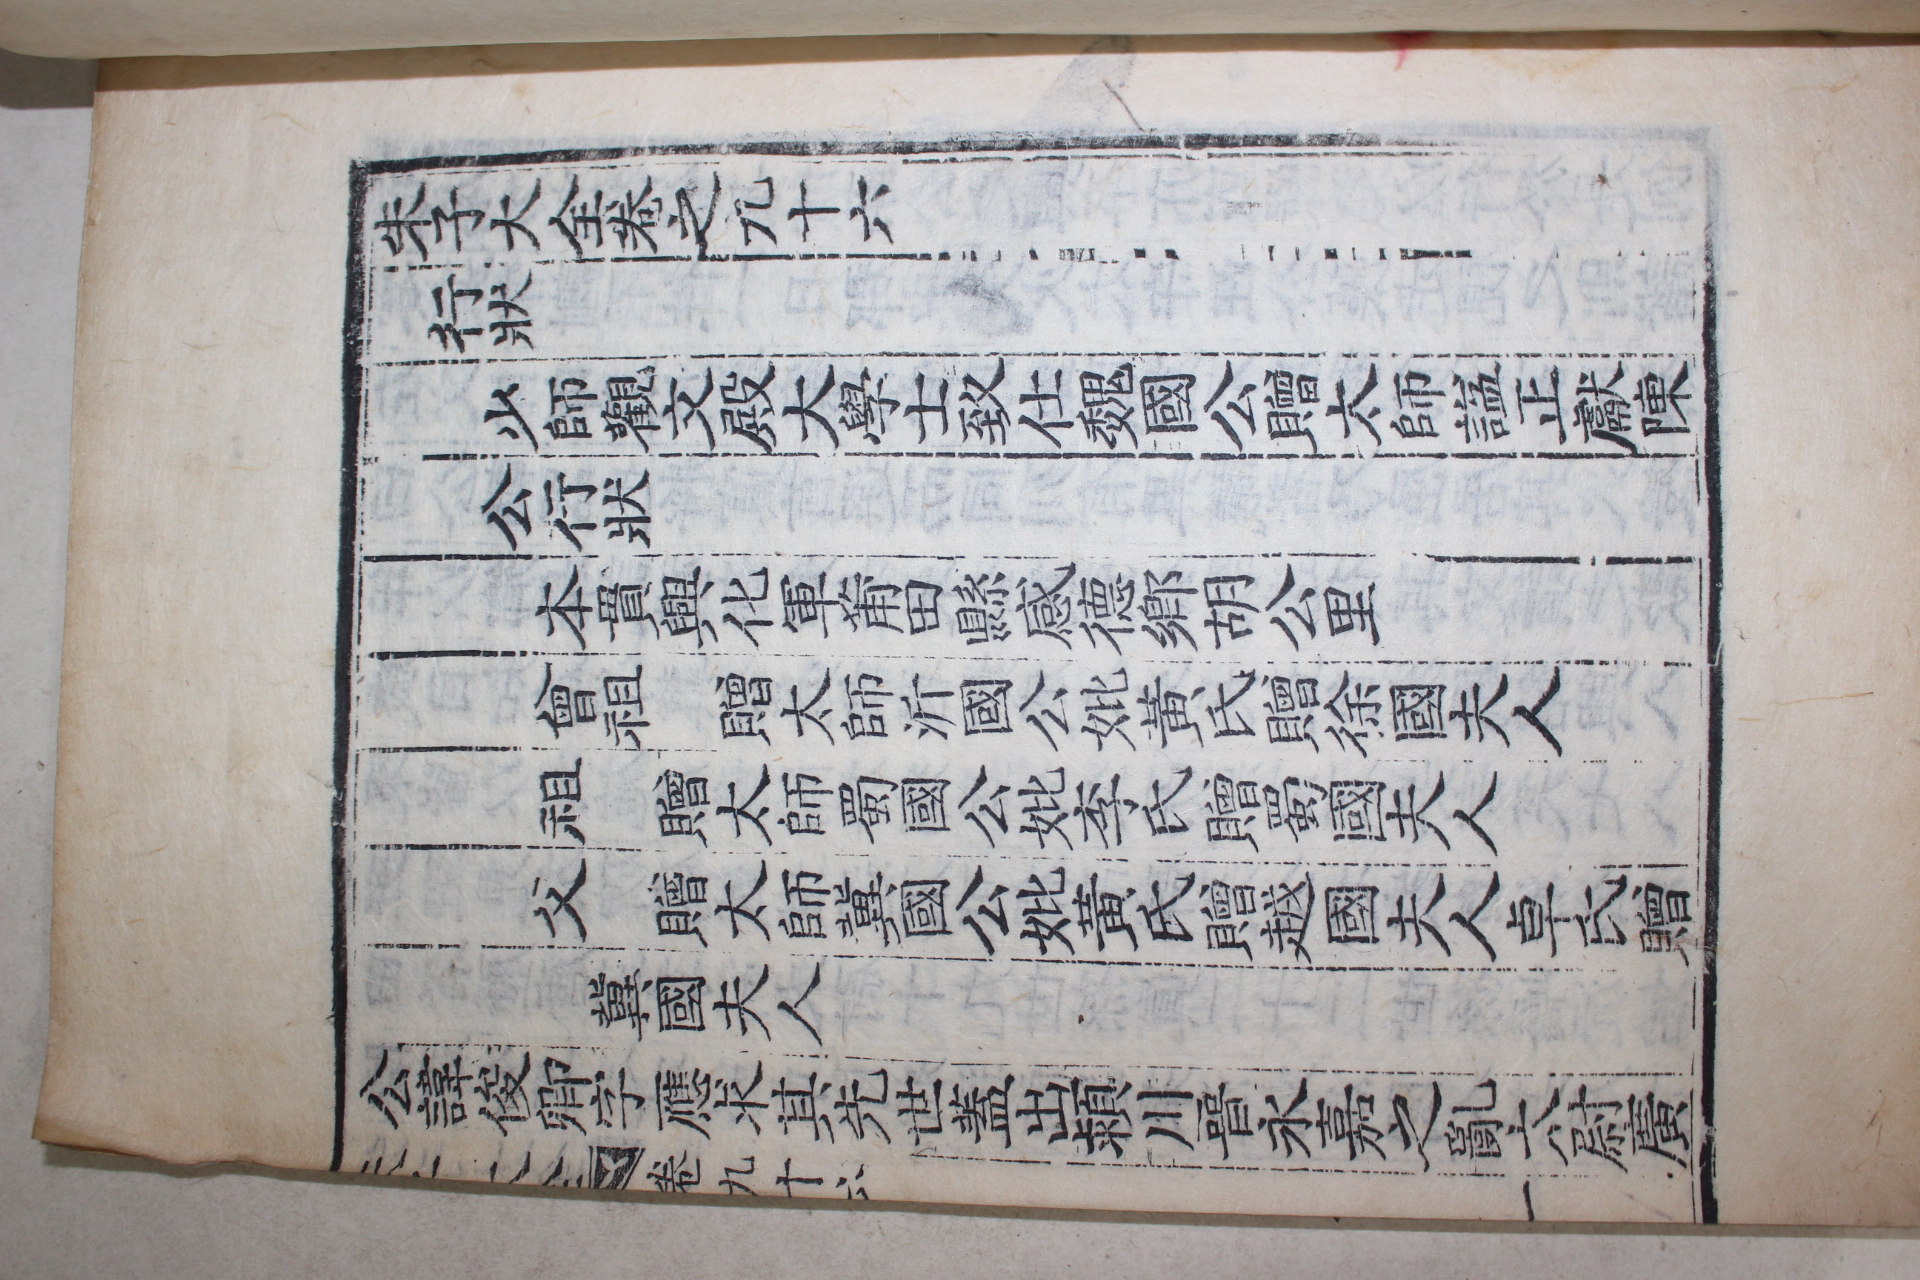 朱子大全卷之九十六
行狀
少師觀文殿大學士致仕魏國公贈太師謚正獻陳
公行狀
本貫興化軍莆田縣感德鄉胡公里
曾祖 贈太師沂國公妣黃氏贈徐國夫人
祖 贈太師蜀國公妣李氏贈蜀國夫人
父 贈太師冀國公妣黃氏贈越國夫人卓氏贈
冀國夫人
公諱俊卿字應求其先世蓋出潁川晉永嘉之亂太尉廣
卷九十六 一